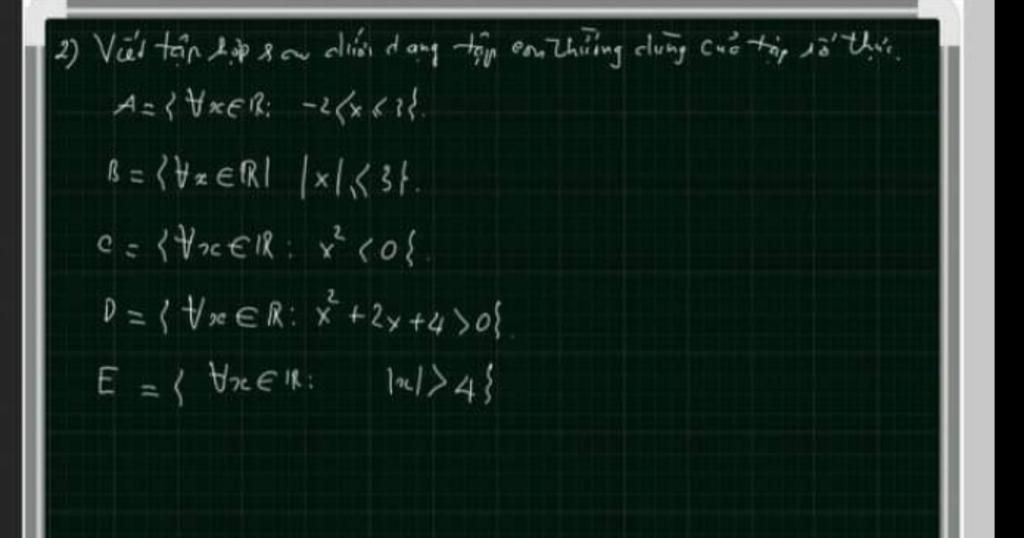 2) Viết tập hợp sau dưới dạng tập con thường dùng của tập số thực.
A = { ∀x∈R: -2<x<3}.
B = {∀x∈R| |x|≤3}.
C = {∀x∈R: x² <0}.
D = { ∀x∈R: x²+2x+4>0}.
E = { ∀x∈R: |x|>4}